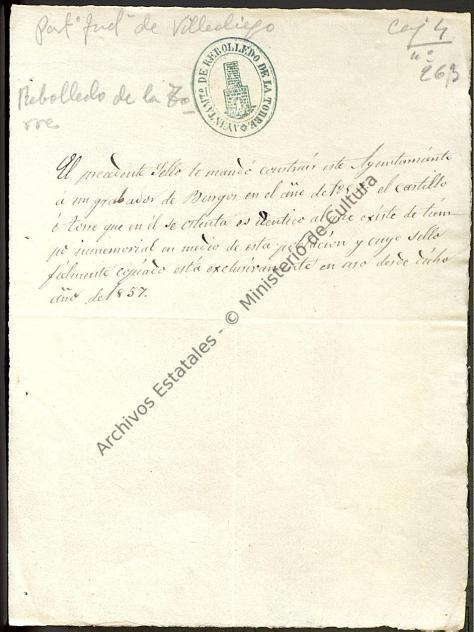 Part.º Jud.l de Villadiego
Caj 4
nº
263
Rebolledo de la To-
rre
AYUNTAMTO. DE REBOLLEDO DE LA TORRE
El precedente Sello le mandó construir este Ayuntamiento
a un grabador de Burgos en el año de 1857 el castillo
ó torre que en él se ostenta es identico al que existe de tiem-
po inmemorial en medio de esta población y cuyo sello
fielmente copiado está exclusivamente en uso desde dicho
año de 1857.
Archivos Estatales - © Ministerio de Cultura